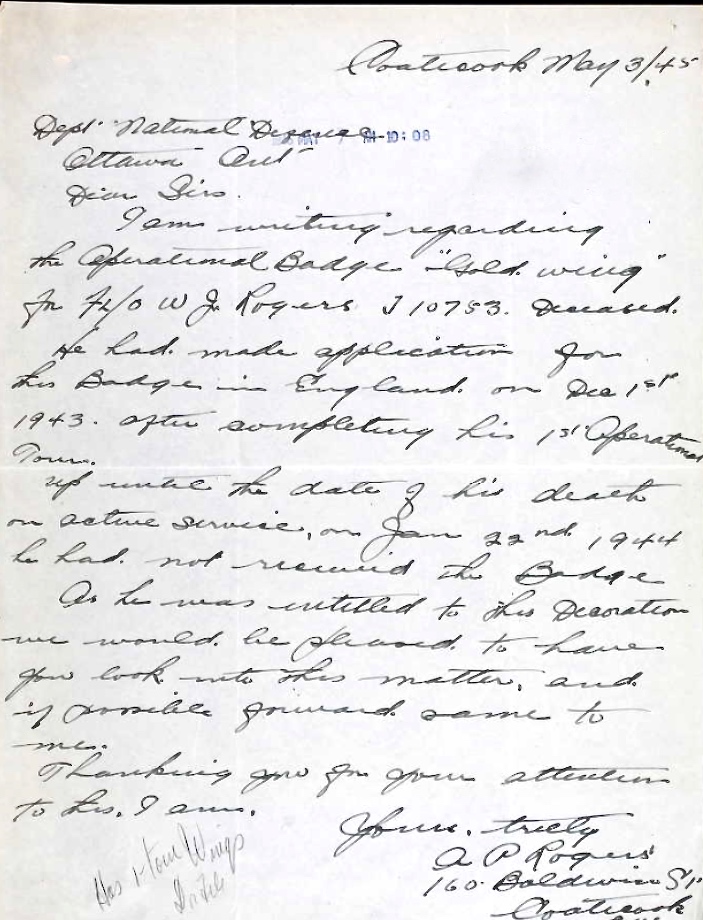 Coaticook May 3/45
Dept National Defence
10:08
Ottawa Ont
Dear Sirs.
I am writing regarding
the Operational Badge "Gold wing"
for F/O W J. Rogers J10753. Deceased.
He had made application for
this Badge in England on Dec 1st
1943. after completing his 1st Operational
Tour.
up until the date of his death
on active service, on Jan 22nd 1944
he had not received the Badge
As he was entitled to this Decoration
we would be pleased to have
you look into this matter, and
if possible forward same to
me.
Thanking you for your attention
to this, I am.
Yours. truly
A P Rogers
160 Baldwin St
Coaticook
Has 1 tour Wings